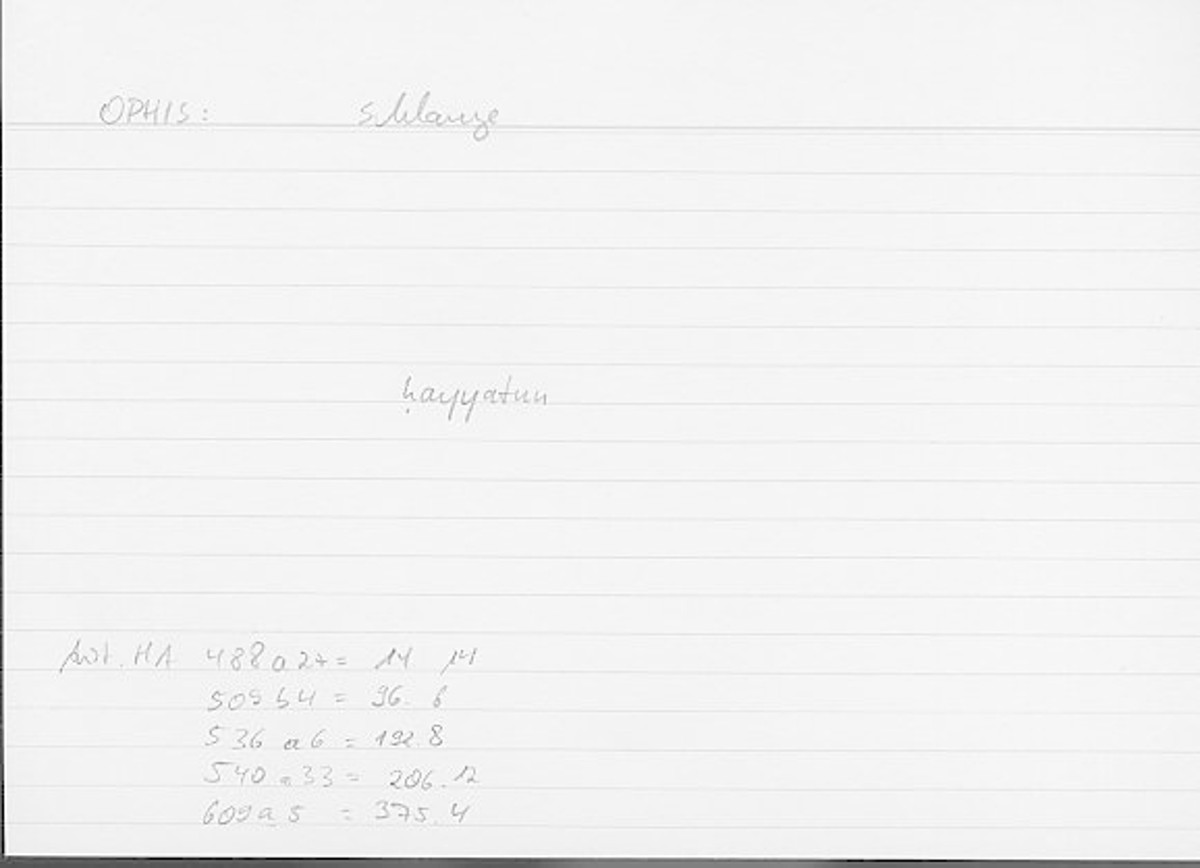 OPHIS: Schlange
ḥayyatun
Arist. HA 488 a 24 = 14 14
509 b 4 = 96. 6
536 a 6 = 192. 8
540 a 33 = 206. 12
609 a 5 = 375. 4